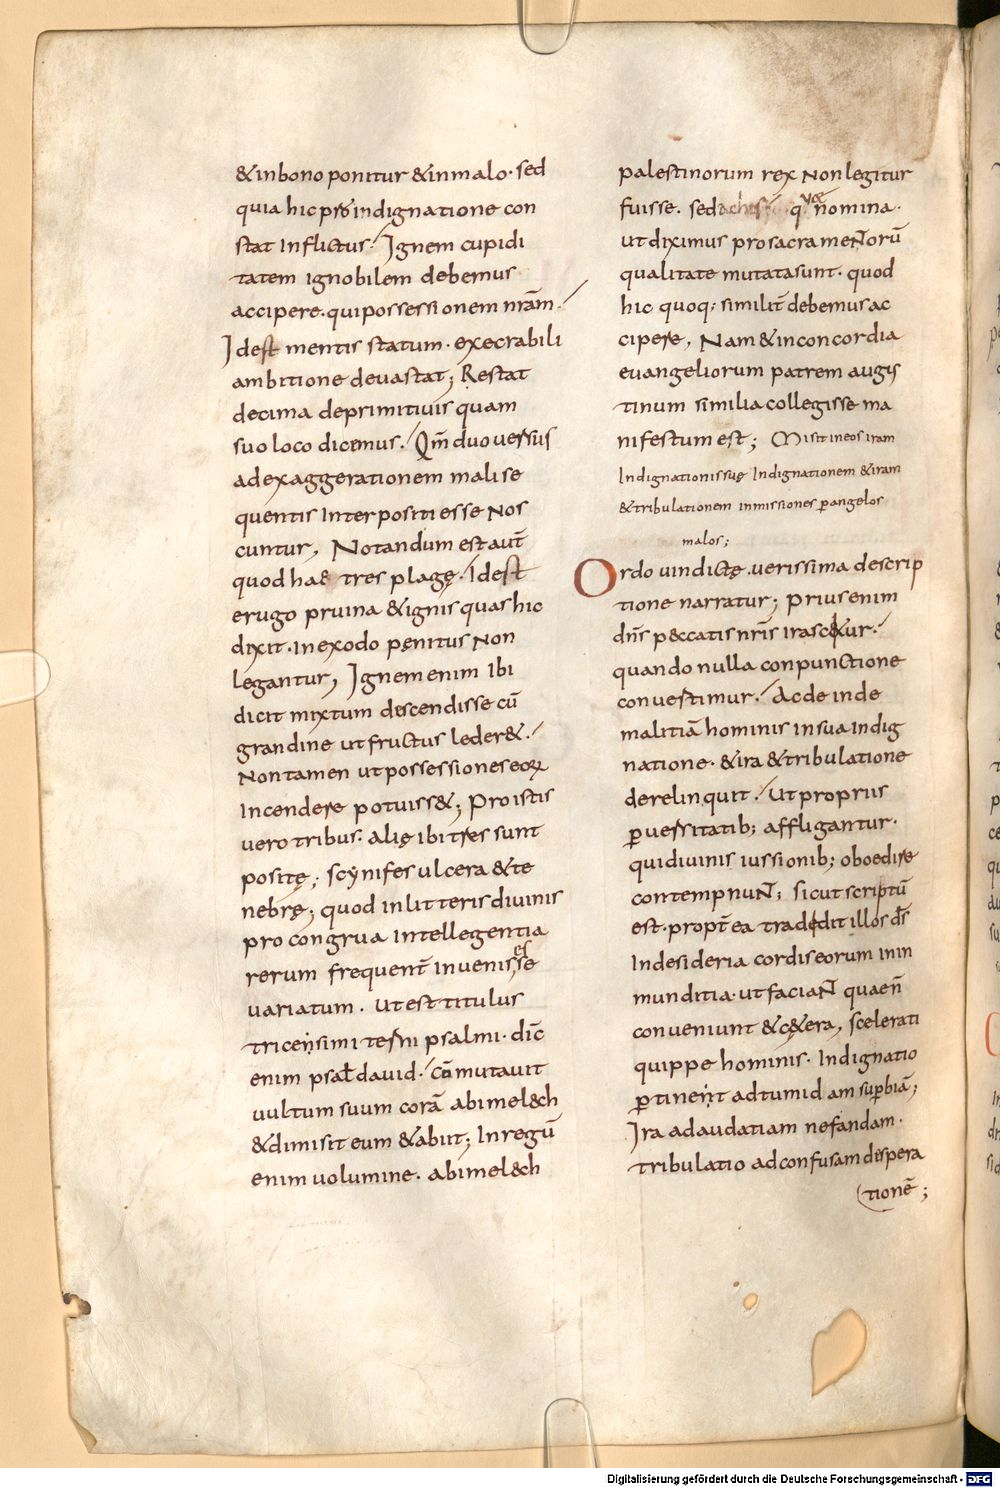 &inbono ponitur &inmalo· sed
quia hic pro indignatione con
stat inflictus· Ignem cupidi
tatem ignobilem debemus
accipere· qui possessionem nr̄am·
Idest mentis statum· execrabili
ambitione deuastat; Restat
decima deprimitiuis quam
suo loco dicemus· Qm̄ duo uersus
ad exaggerationem mali se
quentis interpositi esse nos
cuntur, Notandum est aut̄
quod hae tres plagę· Idest
erugo pruina & ignis quas hic
dixit· In exodo penitus non
legantur, Ignem enim ibi
dicit mixtum descendisse cū
grandine ut fructus leder&·
Non tamen ut possessiones eoꝝ
incendere potuiss&; Pro istis
uero tribus· alię ibi tres sunt
positę; scynifes ulcera & te
nebrę; quod in litteris diuinis
pro congrua intellegentia
rerum frequent̄ inuenisse
uariatum· Ut est titulus
tricensimi tertii psalmi· dic̄
enim psal̄ dauid· Cū mutauit
uultum suum corā abimel&ch
& dimisit eum & abiit; In regū
enim uolumine· abimel&ch
palestinorum rex non legitur
fuisse· sed nomina·
ut diximus pro sacramentorū
qualitate mutata sunt· quod
hic quoq; similit̄ debemus ac
cipere, Nam & in concordia
euangeliorum patrem augus
tinum similia collegisse ma
nifestum est; Misit in eos iram
indignationis suę indignationem & iram
& tribulationem inmissiones ꝑ angelos
malos;
Ordo uindictę· uerissima descrip
tione narratur; Prius enim
dn̄s peccatis nr̄is irasc&ur·
quando nulla conpunctione
conuestimur· Ac deinde
malitiā hominis in sua indig
natione· & ira & tribulatione
derelinquit· Ut propriis
ꝑuersitatib; affligantur·
qui diuinis iussionib; oboedire
contempnunt; sicut scriptū
est· propt̄ ea tradedit illos d̄s
in desideria cordis eorum in in
munditia· ut faciant quae n̄
conueniunt & c&era, scelerati
quippe hominis· Indignatio
ꝑtinent ad tumidam suꝑbiā;
Ira ad audatiam nefandam·
tribulatio ad confusam despera
tionē;
Digitalisierung gefördert durch die Deutsche Forschungsgemeinschaft - DFG